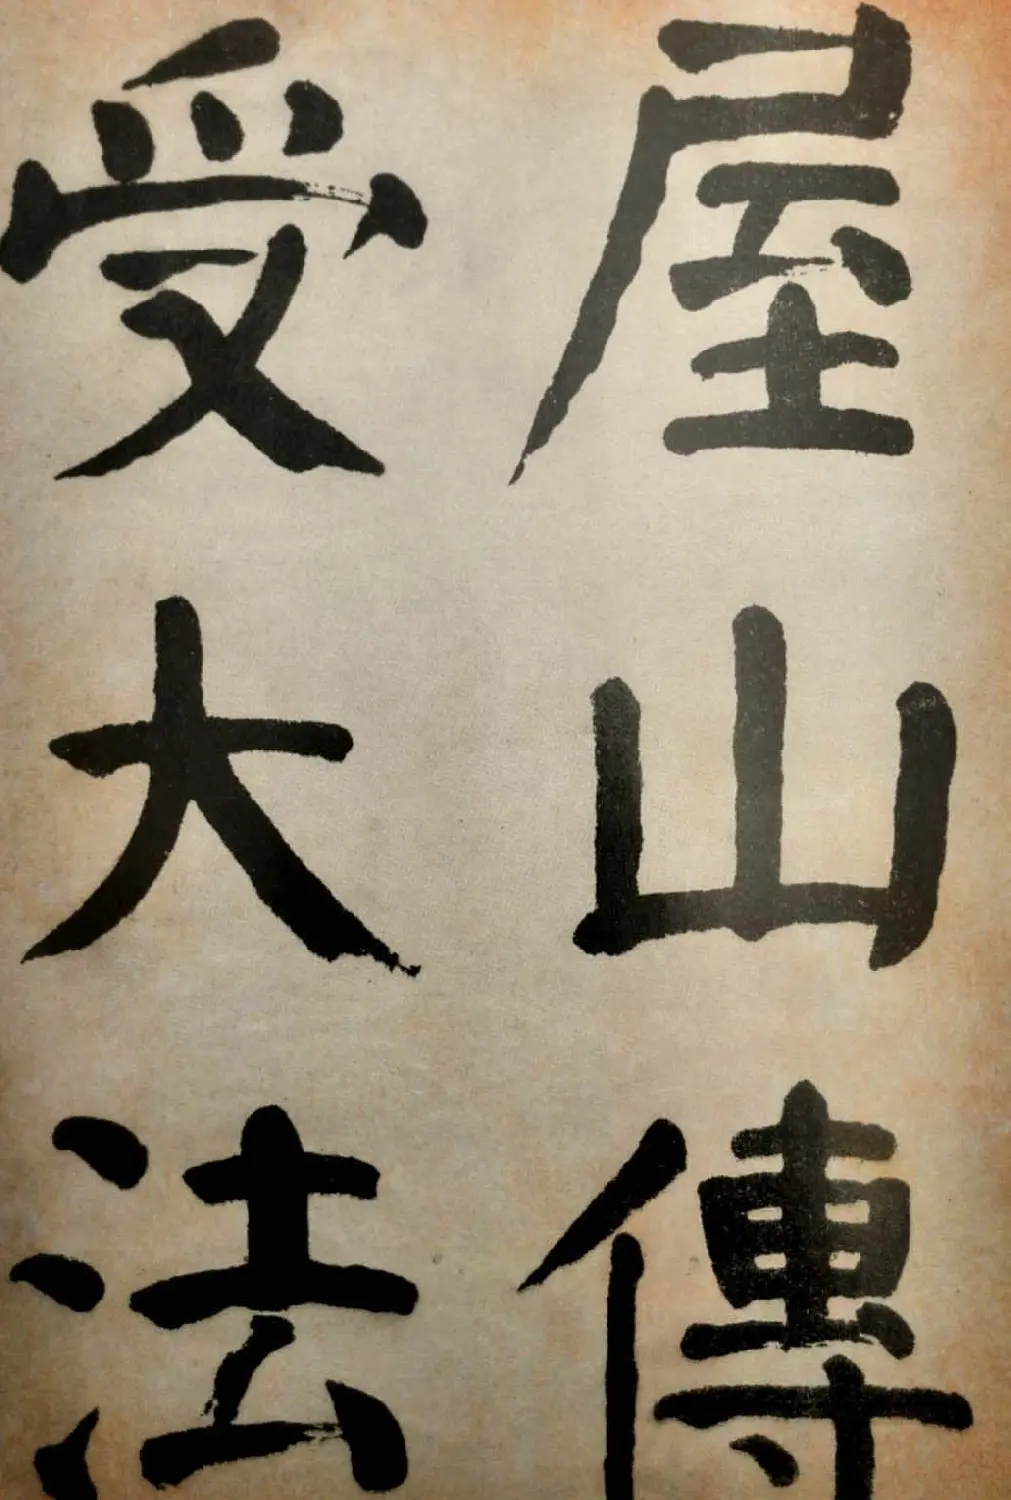 屋山傳
受大法